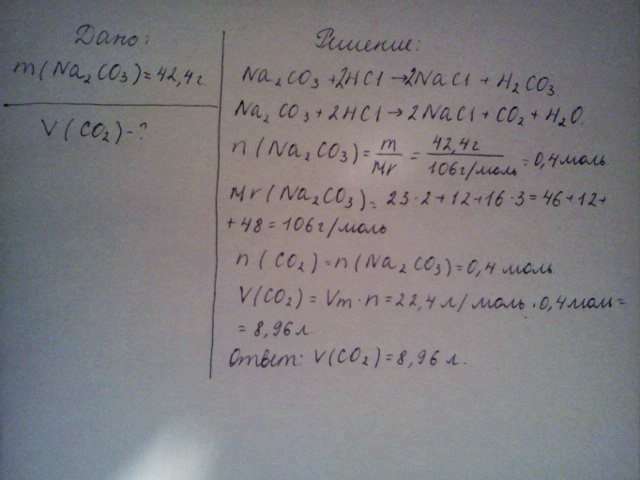 Дано:
m(Na₂CO₃)=42,4г
V(CO₂)-?
Решение:
Na₂CO₃+2HCl→2NaCl+H₂CO₃
Na₂CO₃+2HCl→2NaCl+CO₂+H₂O.
n(Na₂CO₃)=m/Mr=42,4г/106г/моль=0,4моль
Mr(Na₂CO₃)=23·2+12+16·3=46+12+
+48=106г/моль
n(CO₂)=n(Na₂CO₃)=0,4моль
V(CO₂)=Vm·n=22,4л/моль·0,4моль=
=8,96л
Ответ: V(CO₂)=8,96л.